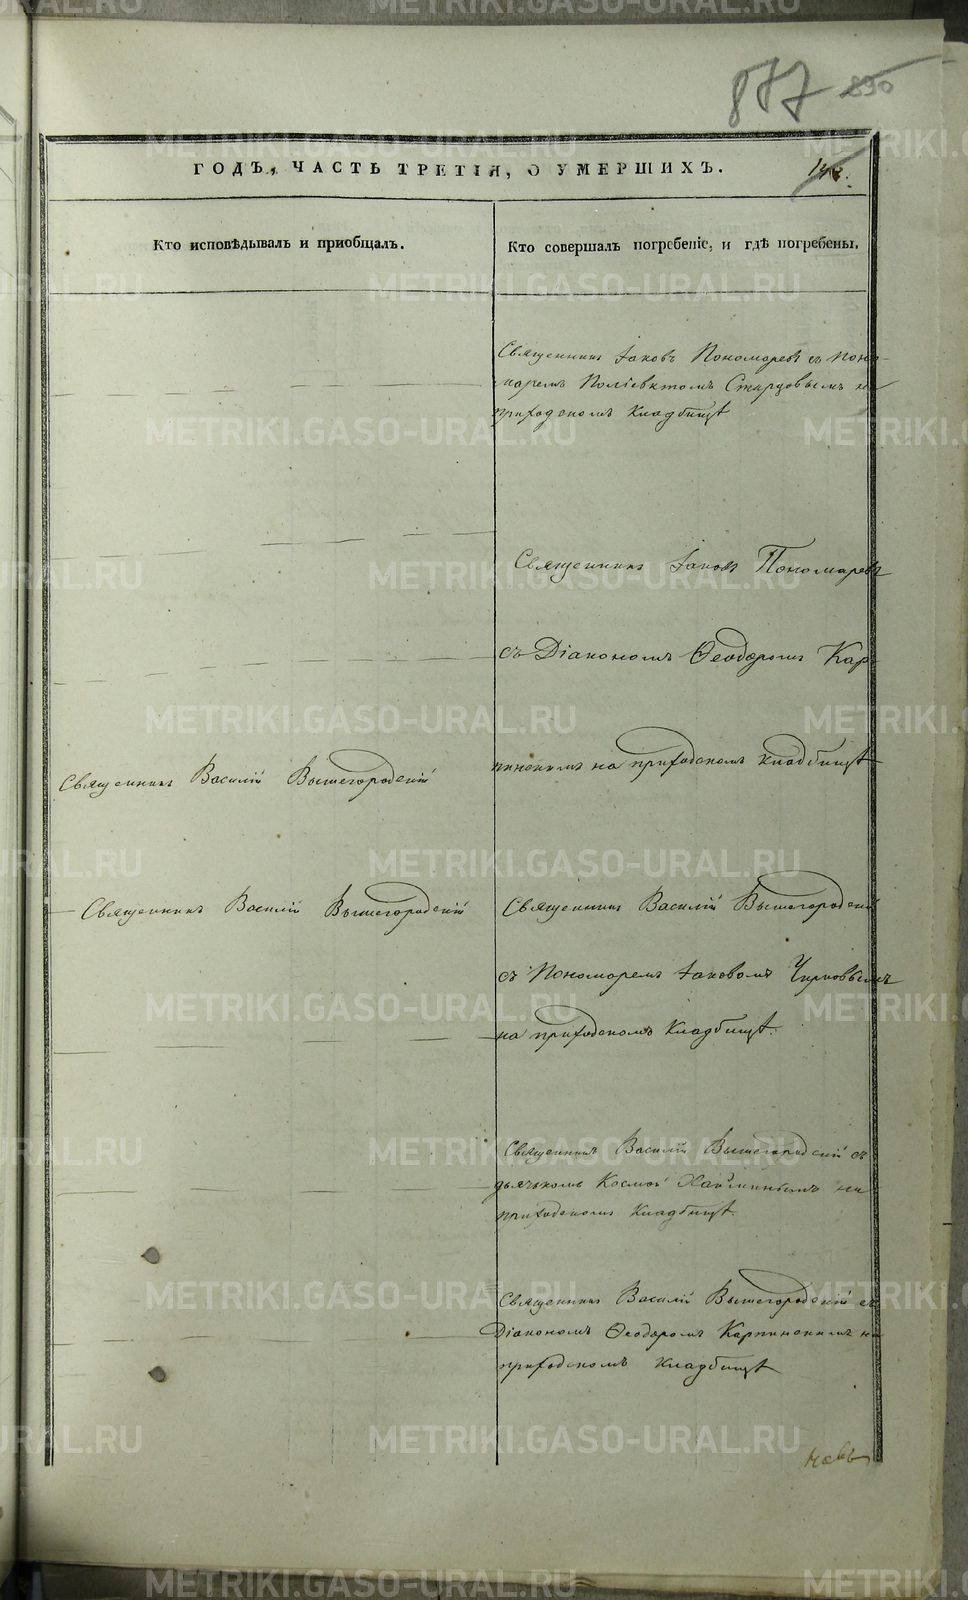 877 890
ГОДЪ, ЧАСТЬ ТРЕТІЯ, О УМЕРШИХЪ.
Кто исповѣдывалъ и приобщалъ.
Кто совершалъ погребеніе, и гдѣ погребены.
Священникъ Іаковъ Пономаревъ съ Поно-
маремъ Поліевктомъ Старцовымъ на
приходскомъ кладбищѣ
Священникъ Іаковъ Пономаревъ
съ Діакономъ Ѳеодоромъ Кар-
пинскимъ на приходскомъ кладбищѣ
Священникъ Василій Вышегородскій
Священникъ Василій Вышегородскій
Священникъ Василій Вышегородскій
съ Пономаремъ Іаковомъ
на приходскомъ кладбищѣ.
Священникъ Василій Вышегородскій съ
дьячкомъ Космой на
приходскомъ кладбищѣ.
Священникъ Василій Вышегородскій съ
Діакономъ Ѳеодоромъ Карпинскимъ на
приходскомъ кладбищѣ
METRIKI.GASO-URAL.RU